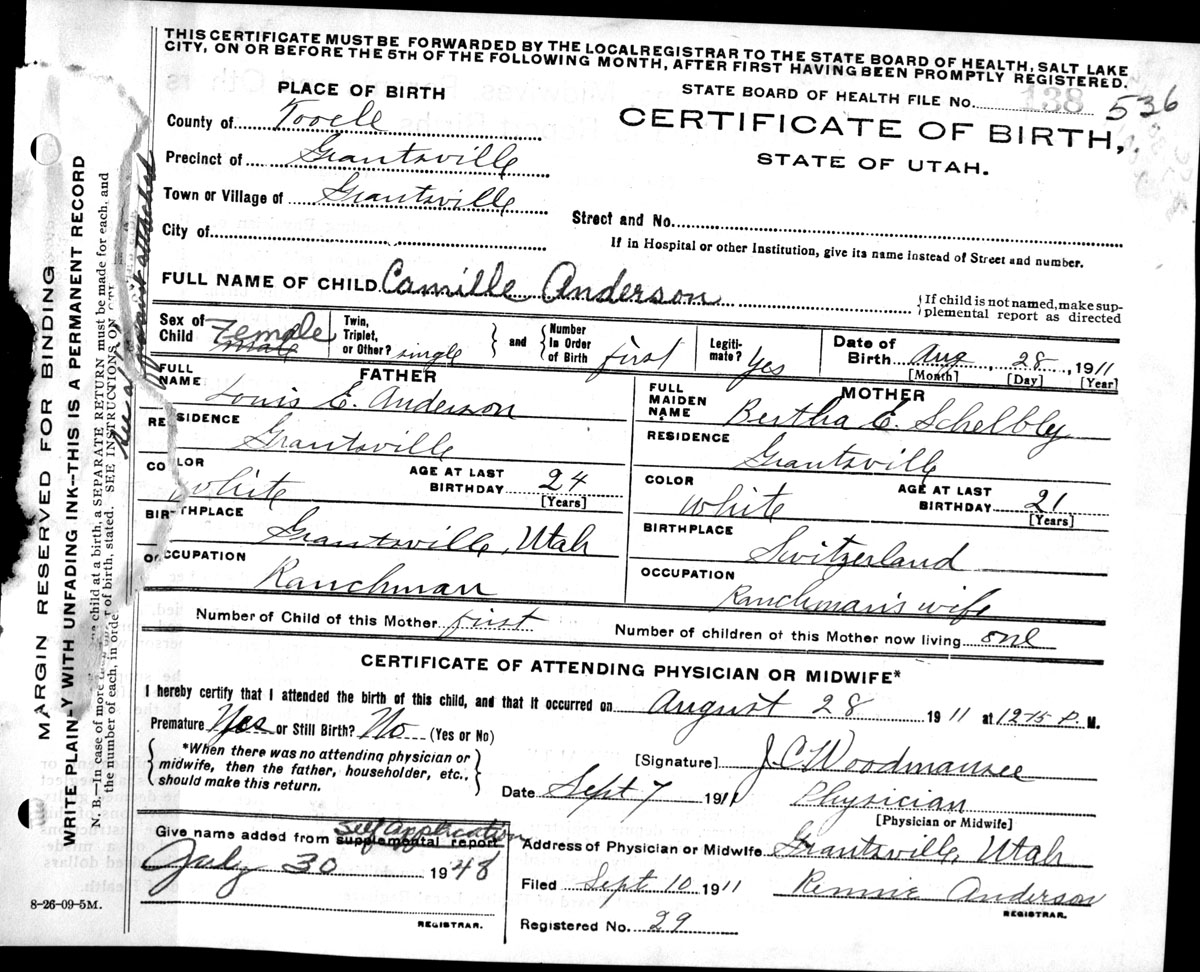 THIS CERTIFICATE MUST BE FORWARDED BY THE LOCALREGISTRAR TO THE STATE BOARD OF HEALTH, SALT LAKE
CITY, ON OR BEFORE THE 5TH OF THE FOLLOWING MONTH, AFTER FIRST HAVING BEEN PROMPTLY REGISTERED.
PLACE OF BIRTH
STATE BOARD OF HEALTH FILE No. 138 536
County of Tooele
CERTIFICATE OF BIRTH,
Precinct of Grantsville
STATE OF UTAH.
Town or Village of Grantsville
Street and No.
City of
If in Hospital or other Institution, give its name instead of Street and number.
FULL NAME OF CHILD Camille Anderson
If child is not named, make sup-
plemental report as directed
Sex of Child Female male
Twin, Triplet, or Other? single
and
Number In Order of Birth first
Legiti-mate? Yes
Date of Birth Aug 28, 1911
[Month] [Day] [Year]
FATHER
FULL NAME Louis E. Anderson
RESIDENCE Grantsville
COLOR White
AGE AT LAST BIRTHDAY 24
[Years]
BIRTHPLACE Grantsville, Utah
OCCUPATION Ranchman
MOTHER
FULL MAIDEN NAME Bertha E. Schelbly
RESIDENCE Grantsville
COLOR White
AGE AT LAST BIRTHDAY 21
[Years]
BIRTHPLACE Switzerland
OCCUPATION Ranchman's wife
Number of Child of this Mother first
Number of children of this Mother now living one
CERTIFICATE OF ATTENDING PHYSICIAN OR MIDWIFE*
I hereby certify that I attended the birth of this child, and that it occurred on August 28 1911 at 12-15 P. M.
Premature Yes or Still Birth? No (Yes or No)
*When there was no attending physician or
midwife, then the father, householder, etc.,
should make this return.
[Signature] J. C. Woodmansee
Date Sept 7 1911
Physician
[Physician or Midwife]
Give name added from supplemental report self application
July 30 1948
REGISTRAR.
Address of Physician or Midwife Grantsville, Utah
Filed Sept 10 1911
Rennie Anderson
REGISTRAR.
Registered No. 29
8-26-09-5M.
MARGIN RESERVED FOR BINDING
WRITE PLAIN-Y WITH UNFADING INK--THIS IS A PERMANENT RECORD
N. B.—In case of more child at a birth, a SEPARATE RETURN must be made for each, and
the number of each, in orde of birth, stated. SEE INSTRUCTIONS ON
See affidavit attached